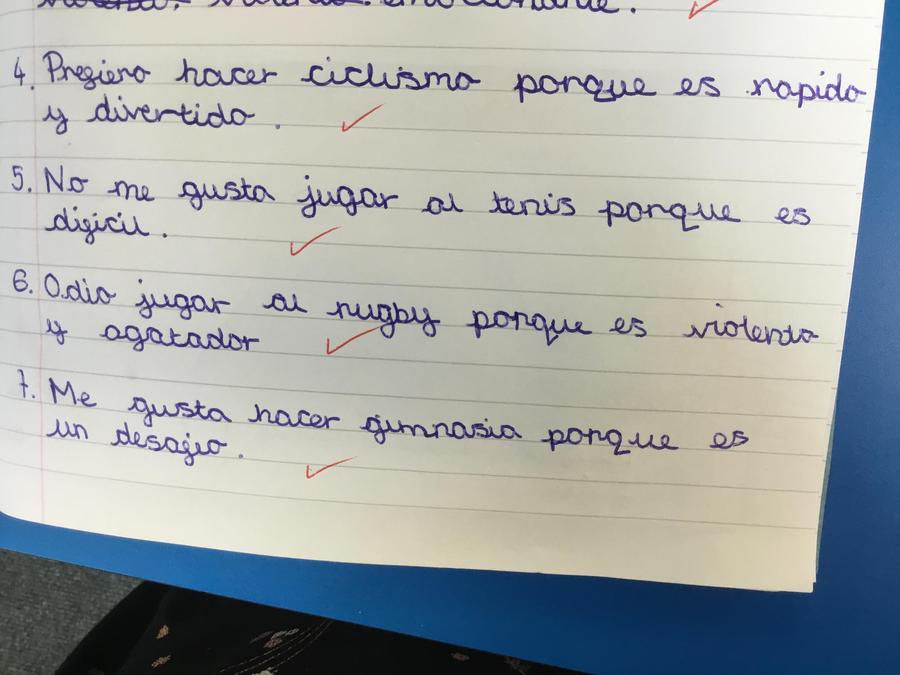 emocionante.
4. Prefiero hacer ciclismo porque es rapido
y divertido.
5. No me gusta jugar al tenis porque es
dificil.
6. Odio jugar al rugby porque es violento
y agotador
7. Me gusta hacer gimnasia porque es
un desafio.